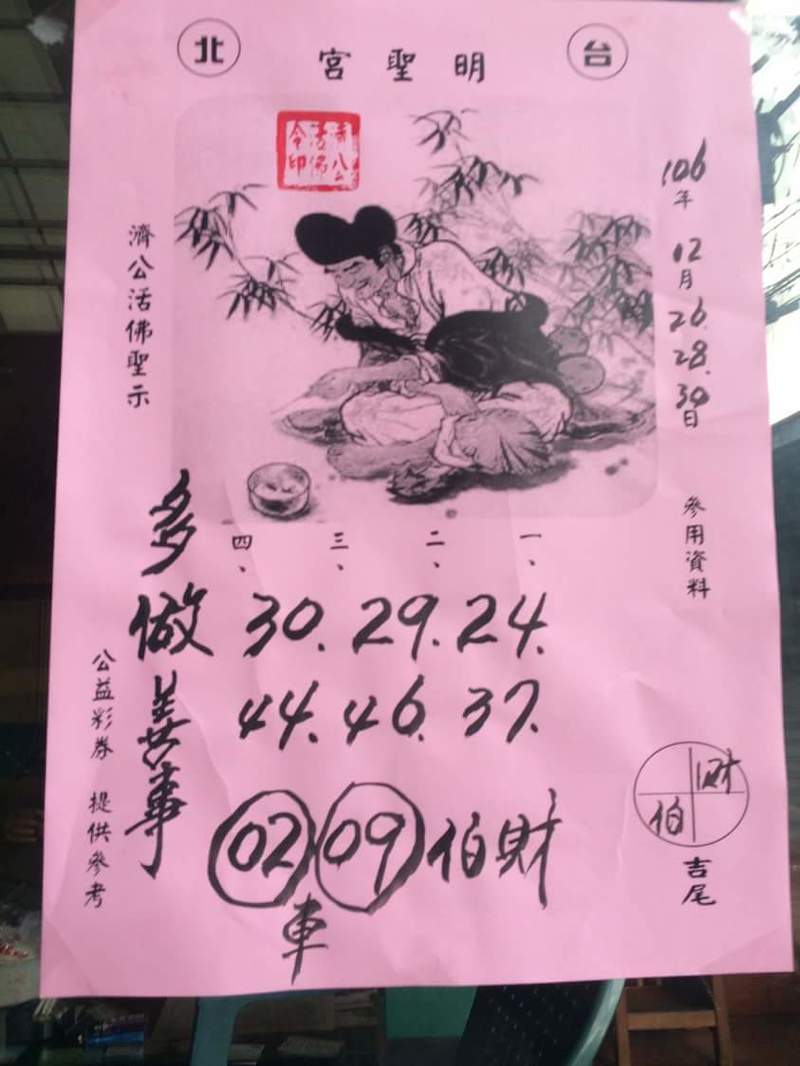 台北
明聖宮
濟公活佛令印
106年12月26.28.30日
參用資料
濟公活佛聖示
一、
二、
三、
四、
24.
29.
30.
37.
46.
44.
財伯
09
02
車
多做善事
公益彩券 提供參考
財
伯
吉尾